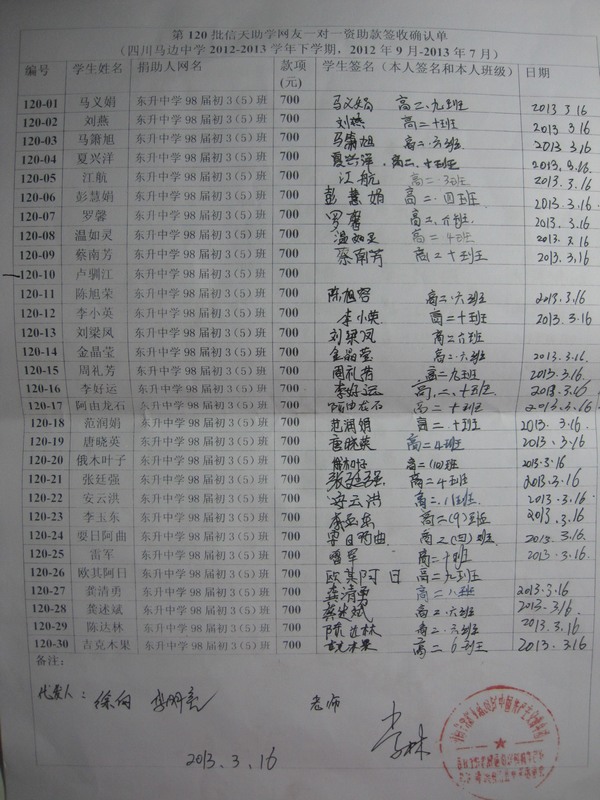 第120批信天助学网友一对一资助款签收确认单
(四川马边中学2012-2013学年下学期，2012年9月-2013年7月)
编号 学生姓名 捐助人网名 款项(元) 学生签名（本人签名和本人班级） 日期
120-01 马义娟 东升中学98届初3(5)班 700 马义娟 高二.九班 2013 3.16
120-02 刘燕 东升中学98届初3(5)班 700 刘燕 高二十班 2013. 3.16
120-03 马箫旭 东升中学98届初3(5)班 700 马箫旭 高二.六班 2013. 3.16
120-04 夏兴洋 东升中学98届初3(5)班 700 夏兴洋. 高二.十班 2013.3.16
120-05 江航 东升中学98届初3(5)班 700 江航 高二.3班 2013.3.16
120-06 彭慧娟 东升中学98届初3(5)班 700 彭慧娟 高二.四班 2013.3.16
120-07 罗馨 东升中学98届初3(5)班 700 罗馨 高二.六班. 2013.3.16
120-08 温如灵 东升中学98届初3(5)班 700 温如灵 高二4班 2013.3.16
120-09 蔡南芳 东升中学98届初3(5)班 700 蔡南芳 高二十班 2013.3.16
120-10 卢驯江 东升中学98届初3(5)班 700
120-11 陈旭荣 东升中学98届初3(5)班 700 陈旭容 高二.六班 2013.3.16
120-12 李小英 东升中学98届初3(5)班 700 李小英 高二十班 2013.3.16
120-13 刘梁凤 东升中学98届初3(5)班 700 刘梁凤 高二六班
120-14 金晶莹 东升中学98届初3(5)班 700 金晶莹 高二.六班 2013.3.16
120-15 周礼芳 东升中学98届初3(5)班 700 周礼芳 高二九班 2013.3.16
120-16 李好运 东升中学98届初3(5)班 700 李好运 高.二.十班 2013.3.16
120-17 阿由龙石 东升中学98届初3(5)班 700 阿由龙石 高二十班 2013.3.16
120-18 范润娟 东升中学98届初3(5)班 700 范润娟 高二.十班 2013.3.16
120-19 唐晓英 东升中学98届初3(5)班 700 唐晓英 高二4班 2013.3.16
120-20 俄木叶子 东升中学98届初3(5)班 700 高二(10)班 2013.3.16
120-21 张廷强 东升中学98届初3(5)班 700 张廷强 高二4班 2013.3.16
120-22 安云洪 东升中学98届初3(5)班 700 安云洪 高二.八班 2013.3.16
120-23 李玉东 东升中学98届初3(5)班 700 李玉东 高二(9)班 2013.3.16
120-24 要日阿曲 东升中学98届初3(5)班 700 要日阿曲 高二(四)班 2013.3.16
120-25 雷军 东升中学98届初3(5)班 700 雷军 高二十班 2013.3.16
120-26 欧其阿日 东升中学98届初3(5)班 700 欧其阿日 高二九班
120-27 龚清勇 东升中学98届初3(5)班 700 龚清勇 高二八班 2013.3.16
120-28 龚述斌 东升中学98届初3(5)班 700 龚述斌 高二.六班 2013.3.16
120-29 陈达林 东升中学98届初3(5)班 700 陈达林 高二.六班 2013.3.16
120-30 吉克木果 东升中学98届初3(5)班 700 吉克木果 高二6班 2013.3.16
备注：
代发人： 徐向 老师
2013.3.16